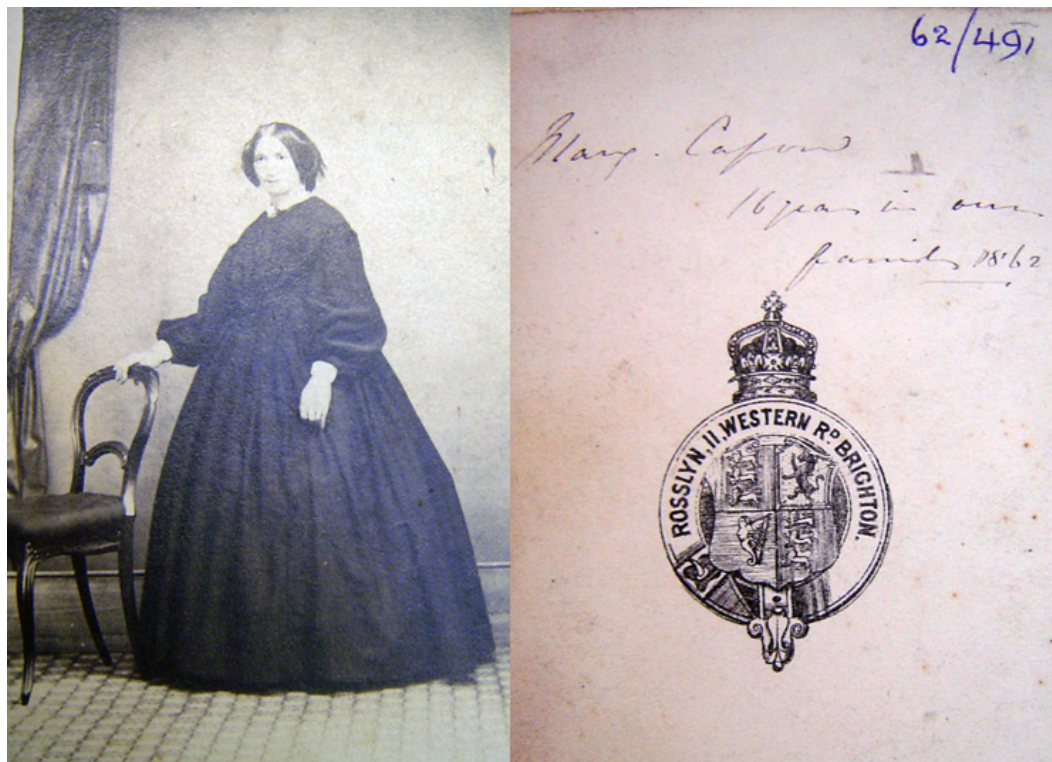 62/491
Mary. Capon
16 years in our
family 1862
ROSSLYN, 11, WESTERN RD BRIGHTON.